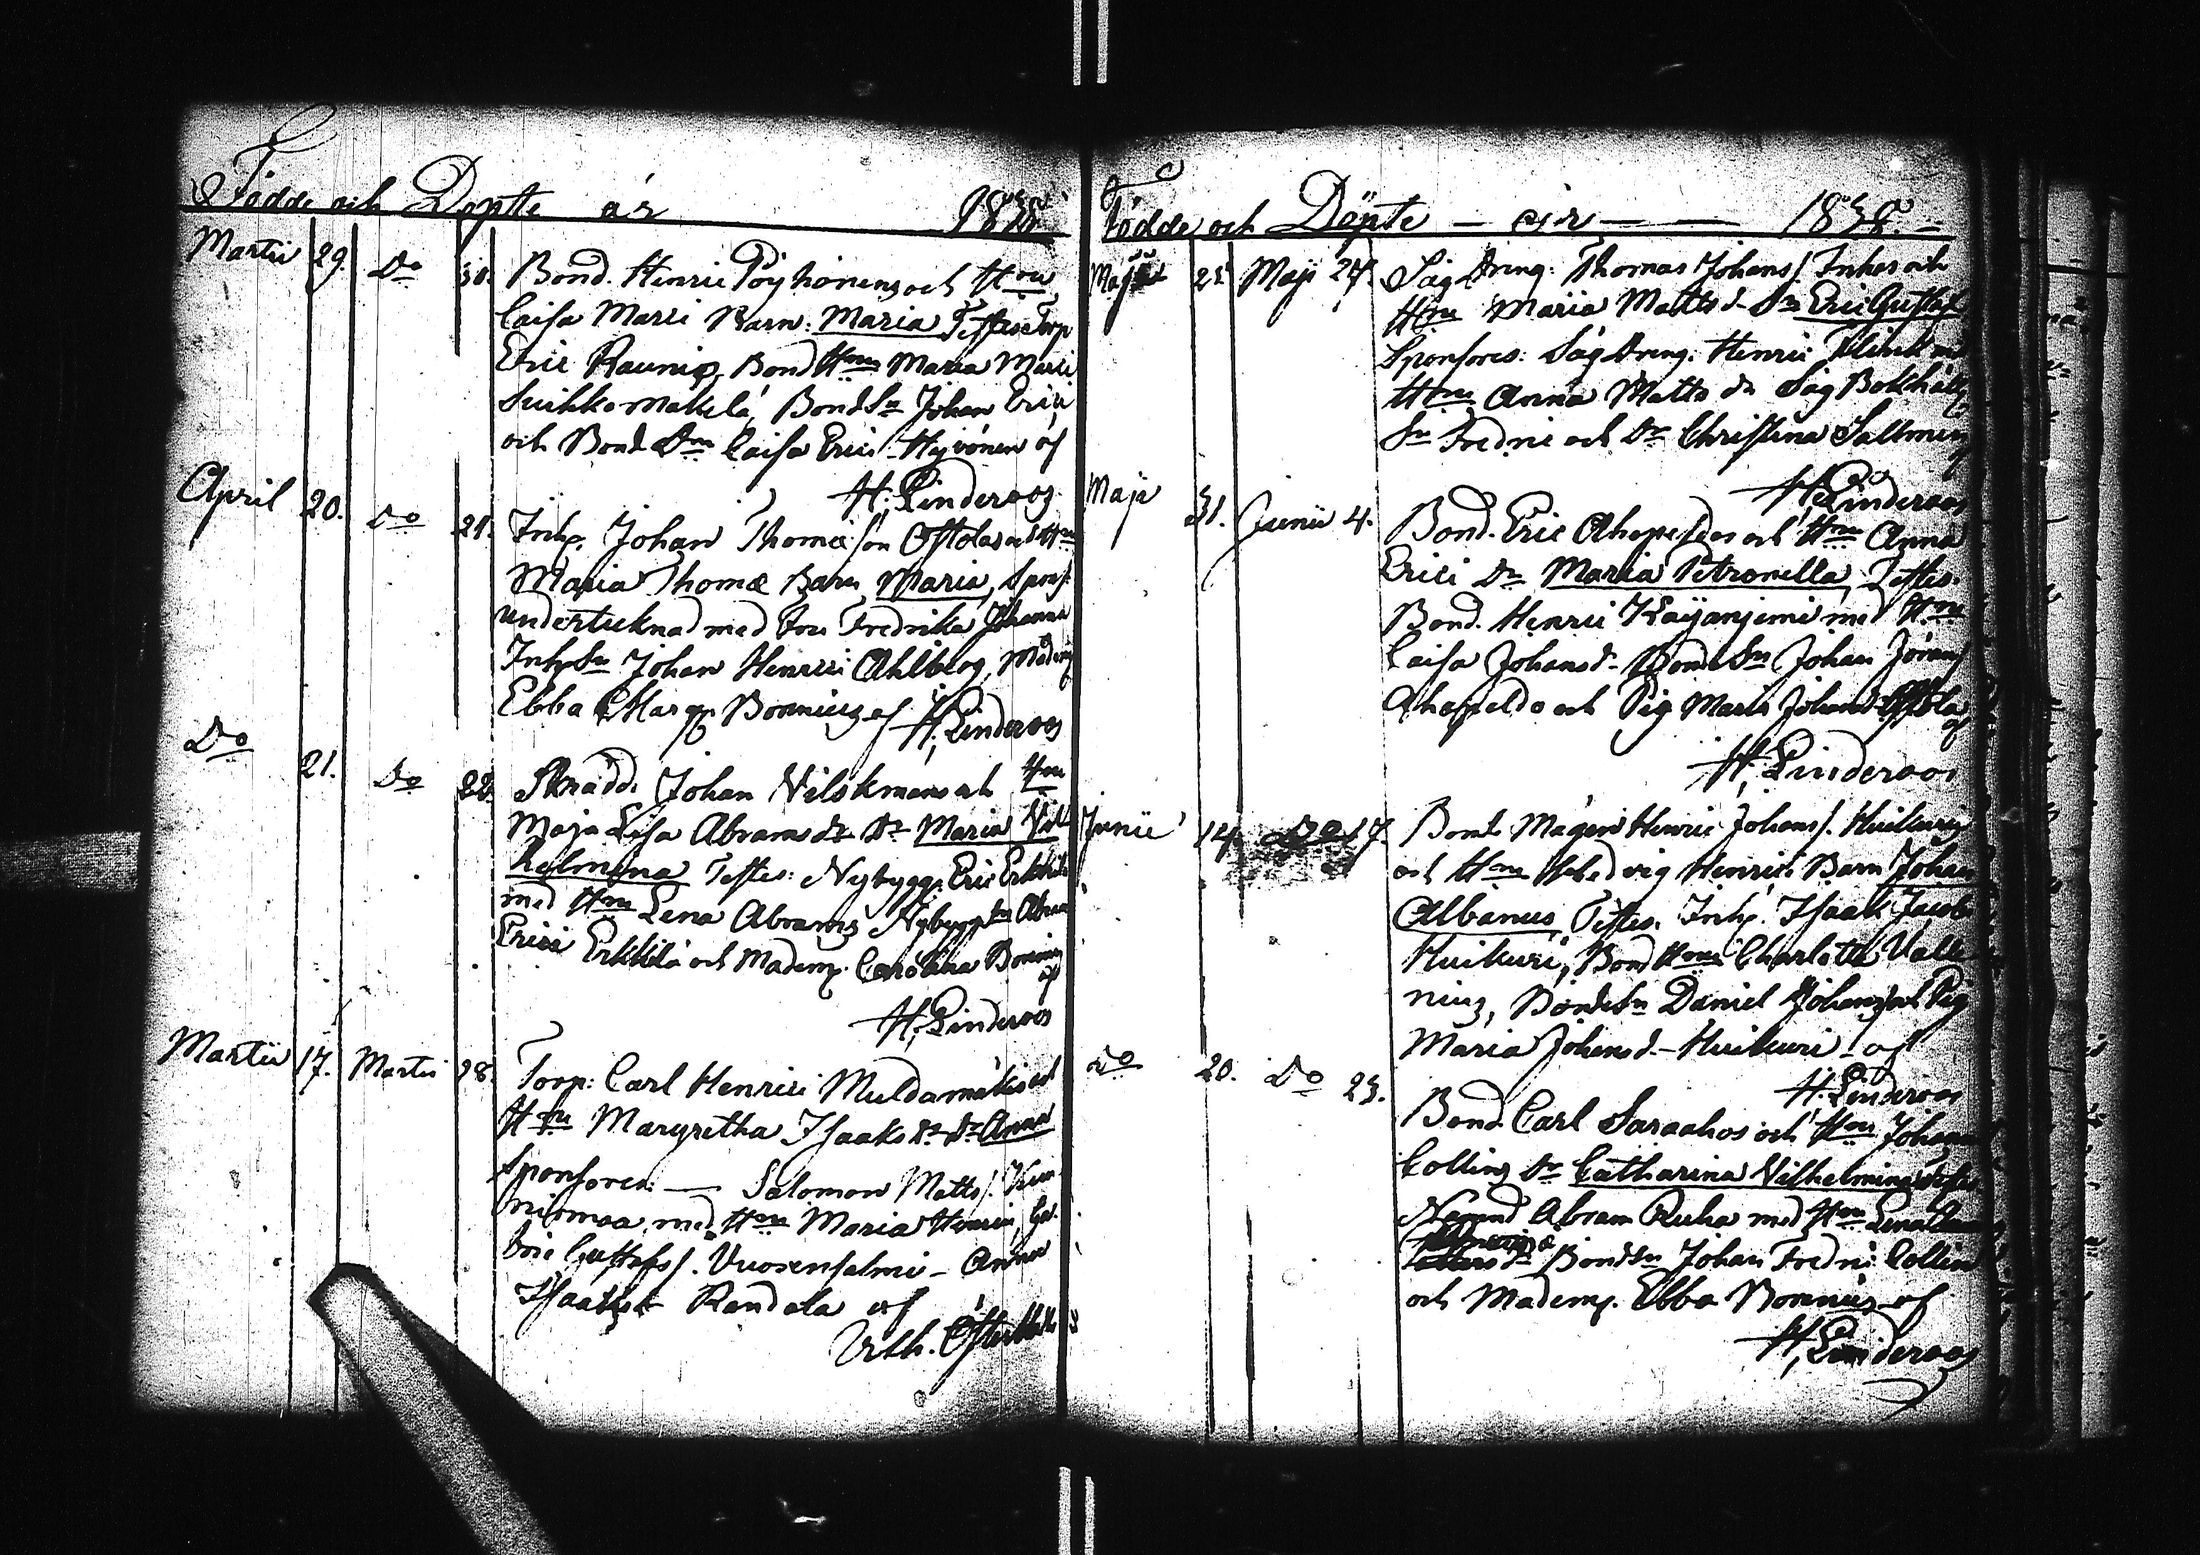 Födde och Döpte år 1838
Martii 29. Do 30. Bond. Henric Pöyhönens och Hru
Caisa Marci Barn: Maria Testes: Torp
Eric Raunio, Bond Hru Maria Marci
Suikkomäkelä, Bond Sn Johan Erici
och Bond Dm Caisa Erici Hyvönen af
H. Linderoos
April 20. Do 21. Inh. Johan Thomæson Ostolas och Hru
Maria Thomæ Barn Maria, Spons.
undertecknad med Fru Fredrika Johanna
Inh Sn Johan Henrici Ahlberg, Madem
Ebba Marg. Bonnius af H. Linderoos
Do 21. Do 22. Skrädd. Johan Vilskmans och Hru
Maja Lisa Abrams dr Dr Maria Vil
helmina Testes: Nybygg. Eric Erkkilä
med Hru Lena Abrams, Nybygg Sn Abra
Erici Erkkilä och Madem. Carolina Bonnius
af
H. Linderoos
Martii 17. Martii 28. Torp: Carl Henrici Muldamäkis och
Hru Margretha Isaaks dr Dr Anna
Sponsores: — Salomon Matts s.
med Hru Maria Henrici,
Gustafs s. Vuosensalmi – Anna
Isaaks dr Randala af
Födde och Döpte — år — — 1838.
Maji 25 Maji 27. Såg Dreng: Thomas Johans s. Inhes och
Hru Maria Matts d. Sn Eric Gustaf
Sponsores: Såg Dreng. Henric Flink md
Hru Anna Matts dr Såg Bokhåll
Sn Fredric och Dr Christina Sallmen
af
H. Linderoos
Maji 31. Junii 4. Bond. Eric Ahopeldos och Hru Anna
Erici Dr Maria Petronella, Testes.
Bond. Henric Kayanjemi med Hru
Caisa Johans d. Bonde Sn Johan Jörans
Ahopeldo och Pig Maria Johans d.
af
H. Linderoos
Junii 14. Do 17. Bond Mågen Henric Johans s. Huikuris
och Hru Hedvig Henrici Barn Johan
Albanus, Testes. Inh. Isaak Jacobs
Huikuri, Bond Hru Charlotta Valle
nius, Bonde Sn Daniel Johans s och Pig
Maria Johans d. Huikuri – af
H. Linderoos
Do 20. Do 23. Bond. Carl Saraahos och Hru Johanna
Collins Dr Catharina Vilhelmina Testes
Nämnd Abram Ruha med Hru Lena
Bond Sn Johan Fredric Collin
och Madem. Ebba Bonnius af
H. Linderoos